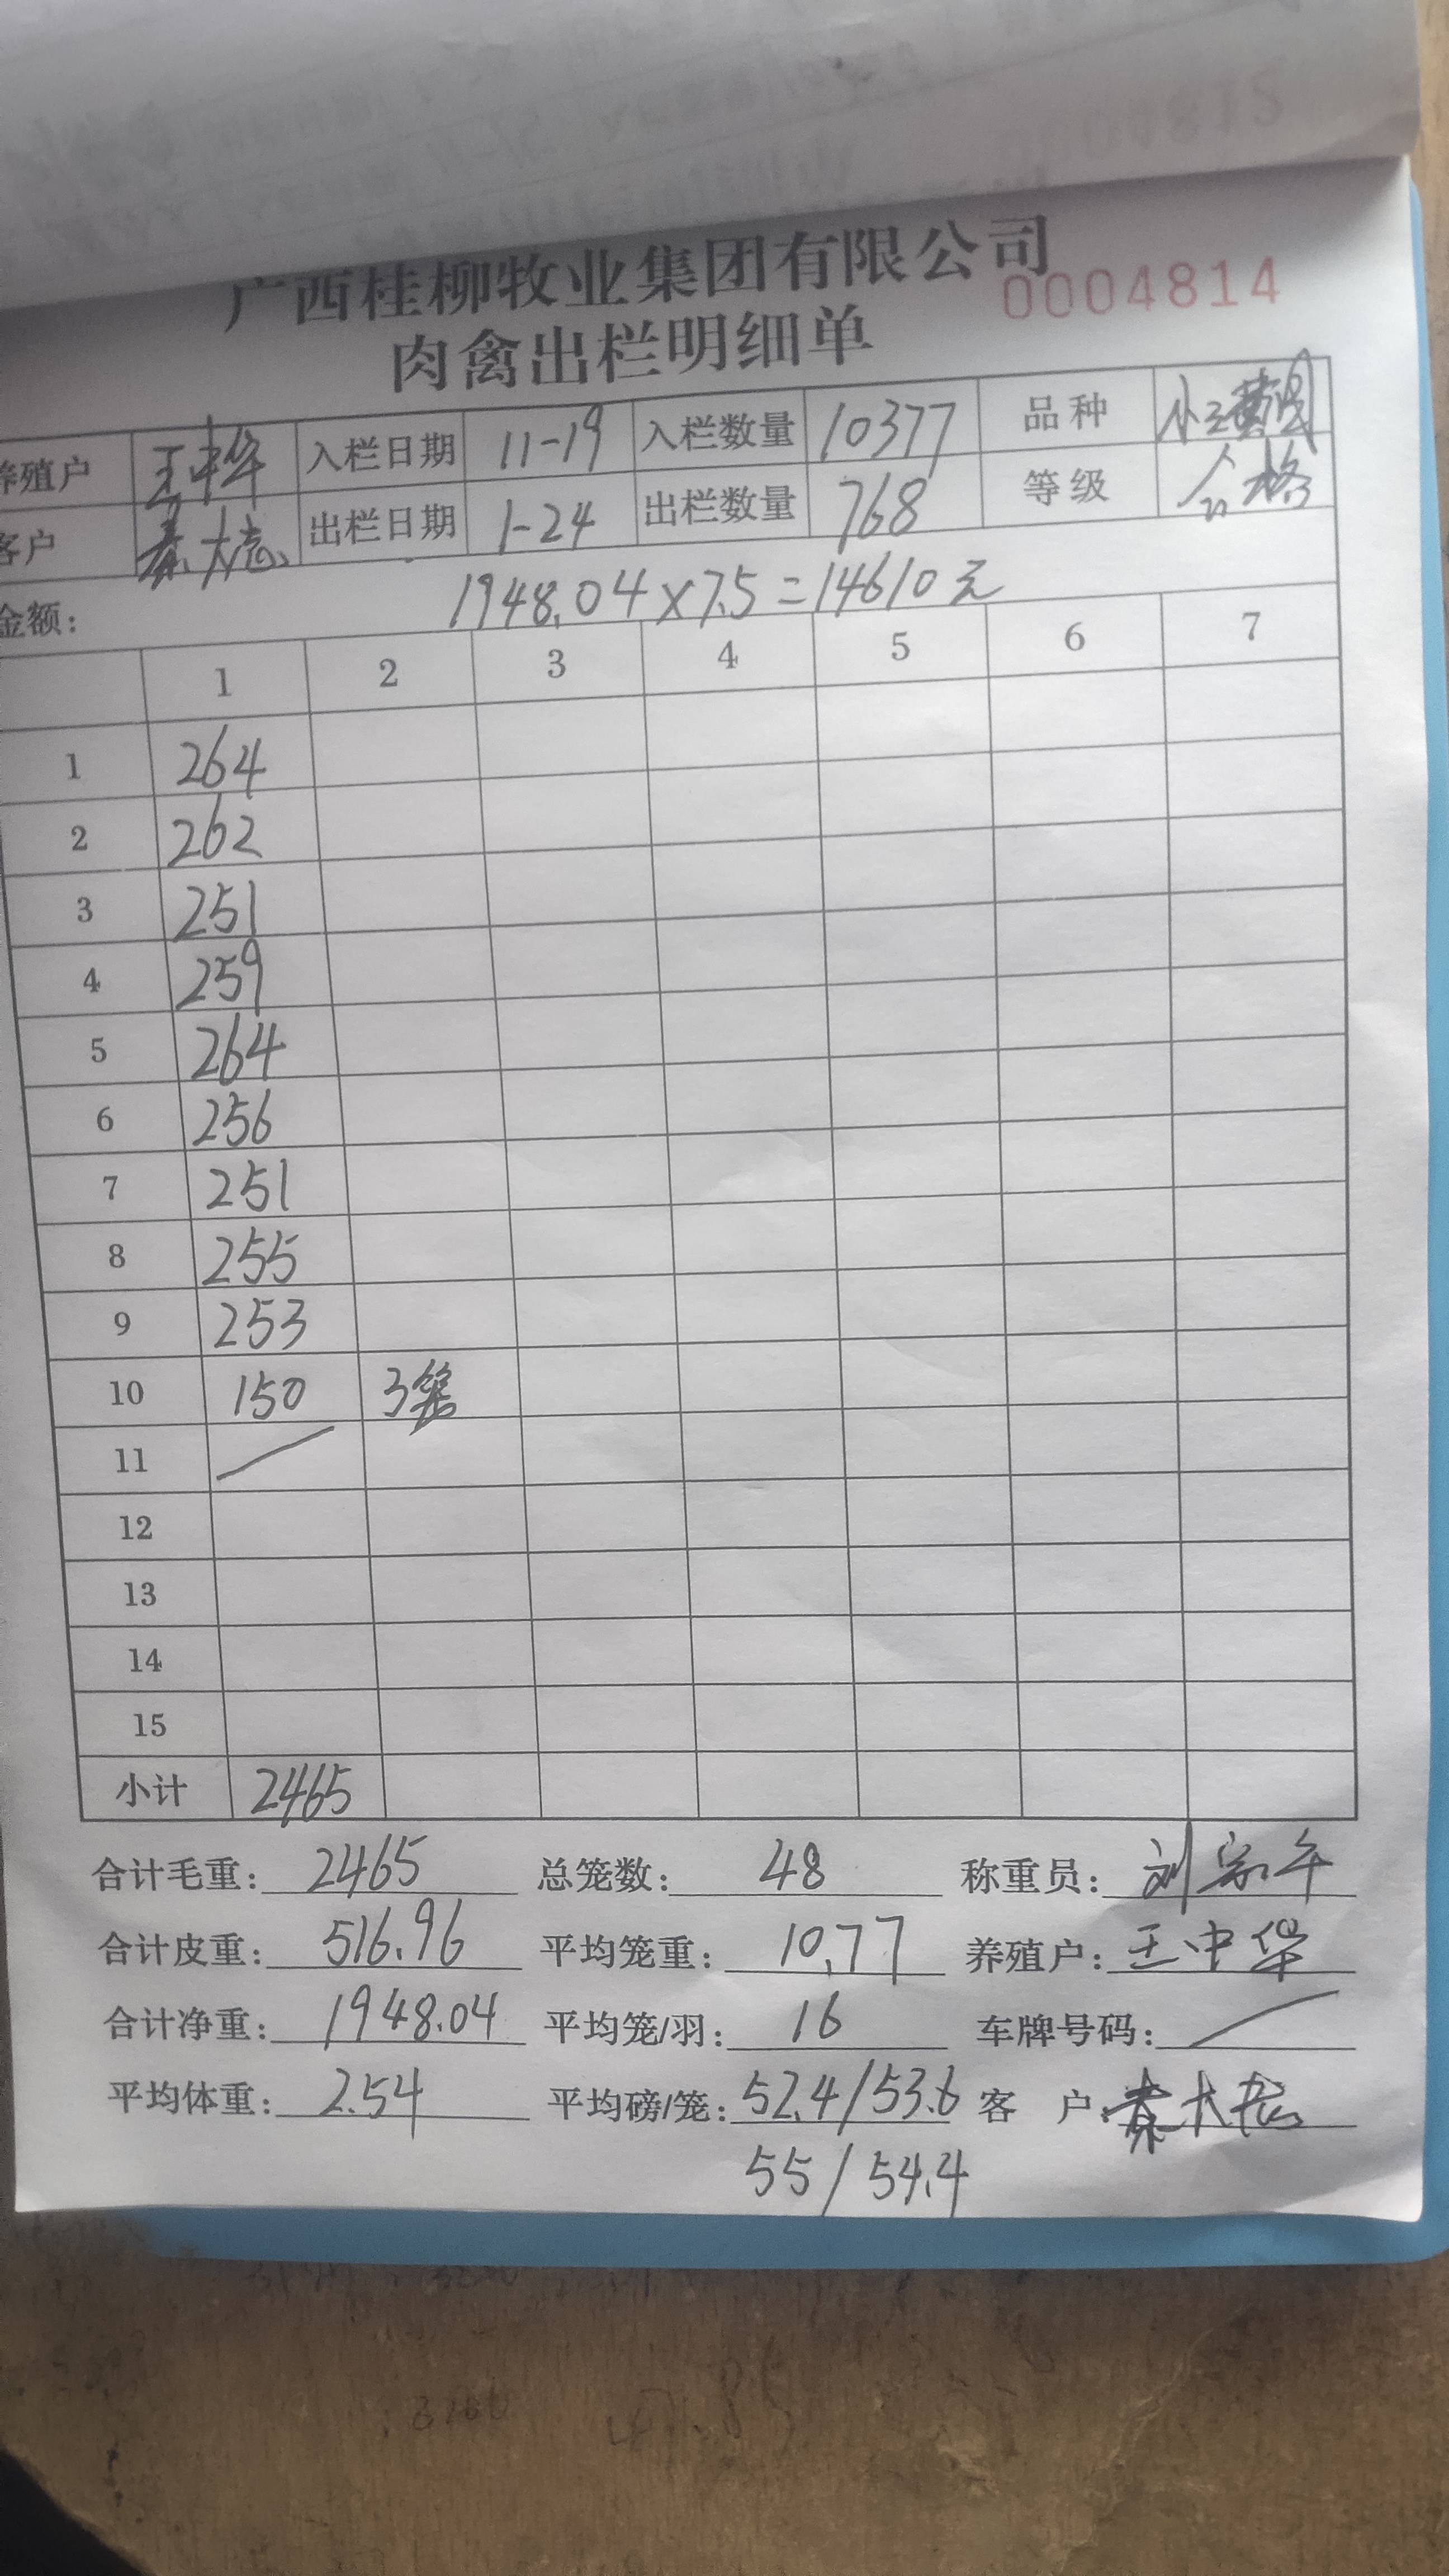 广西桂柳牧业集团有限公司
0004814
肉禽出栏明细单
养殖户 王中华 入栏日期 11-19 入栏数量 10377 品种
客户 大志 出栏日期 1-24 出栏数量 768 等级 合格
金额: 1948.04×7.5=14610元
1 2 3 4 5 6 7
1 264
2 262
3 251
4 259
5 264
6 256
7 251
8 255
9 253
10 150 3笼
11
12
13
14
15
小计 2465
合计毛重: 2465 总笼数: 48 称重员: 刘
合计皮重: 516.96 平均笼重: 10.77 养殖户: 王中华
合计净重: 1948.04 平均笼/羽: 16 车牌号码:
平均体重: 2.54 平均磅/笼: 52.4/53.6 客户:
55/54.4